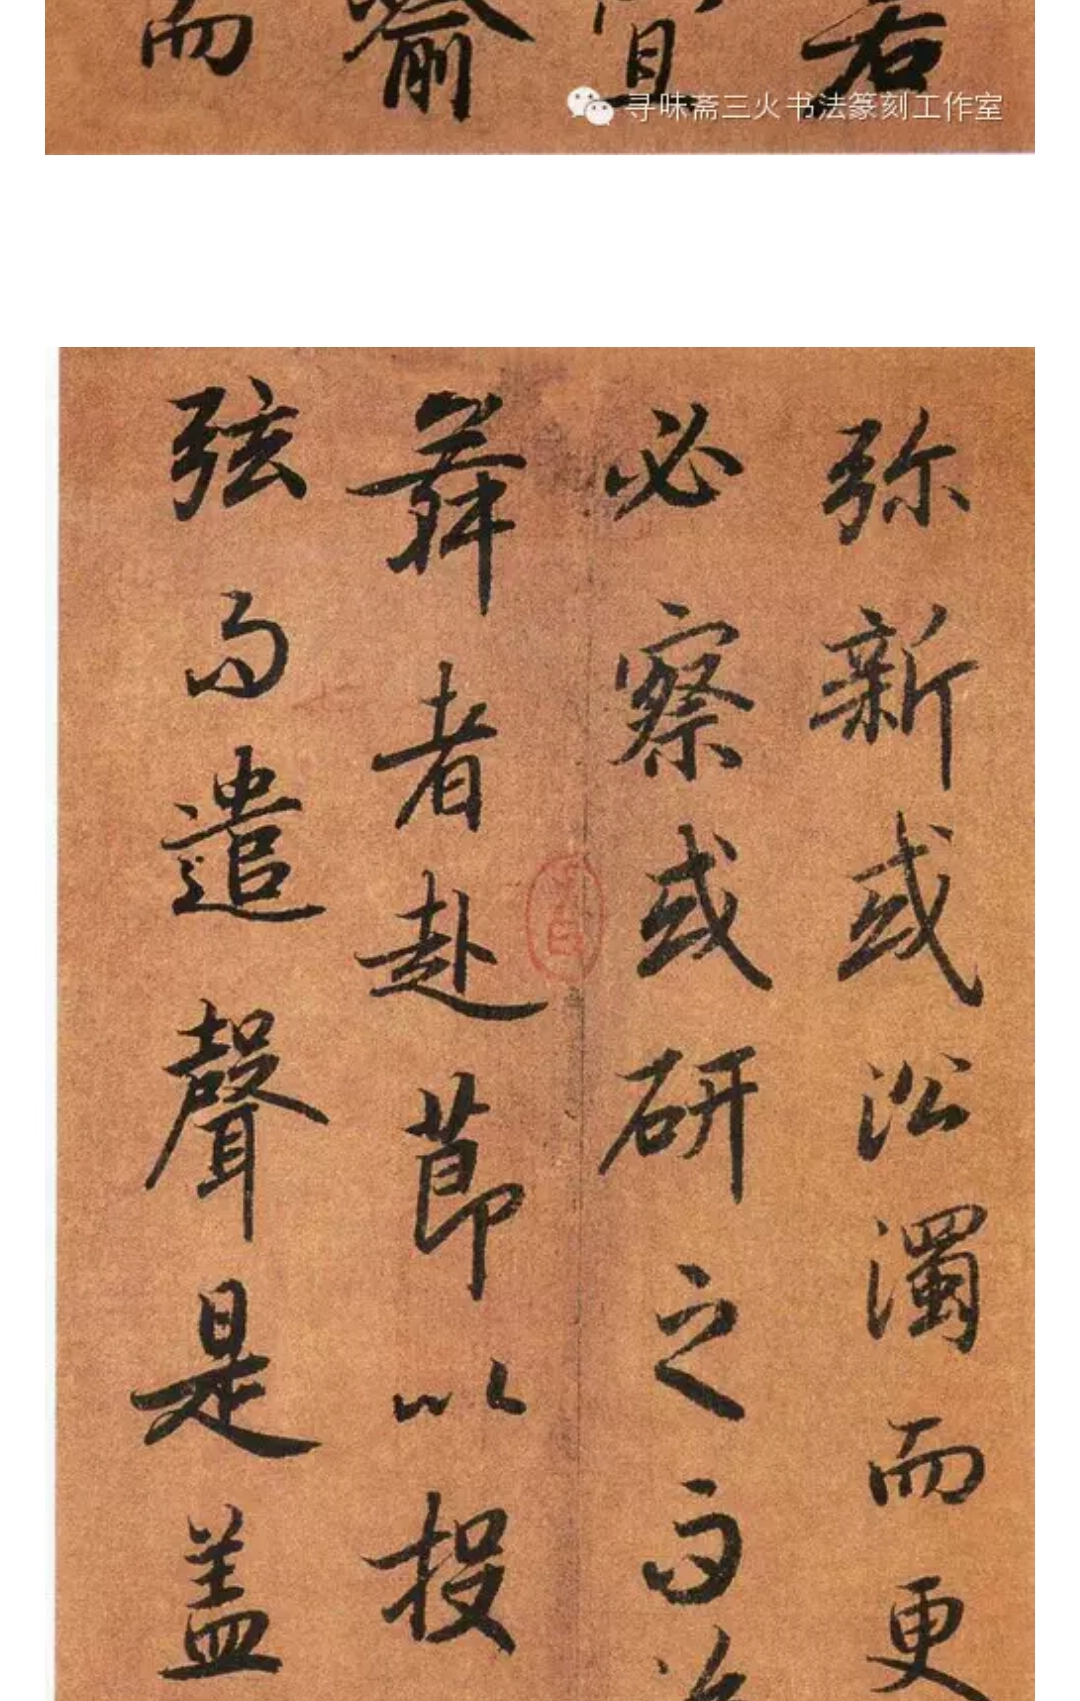 而 喻 宜 若
寻味斋三火书法篆刻工作室
弥新或沿濁而更
必察或研之而
舞者赴節以投
弦而遣聲是盖